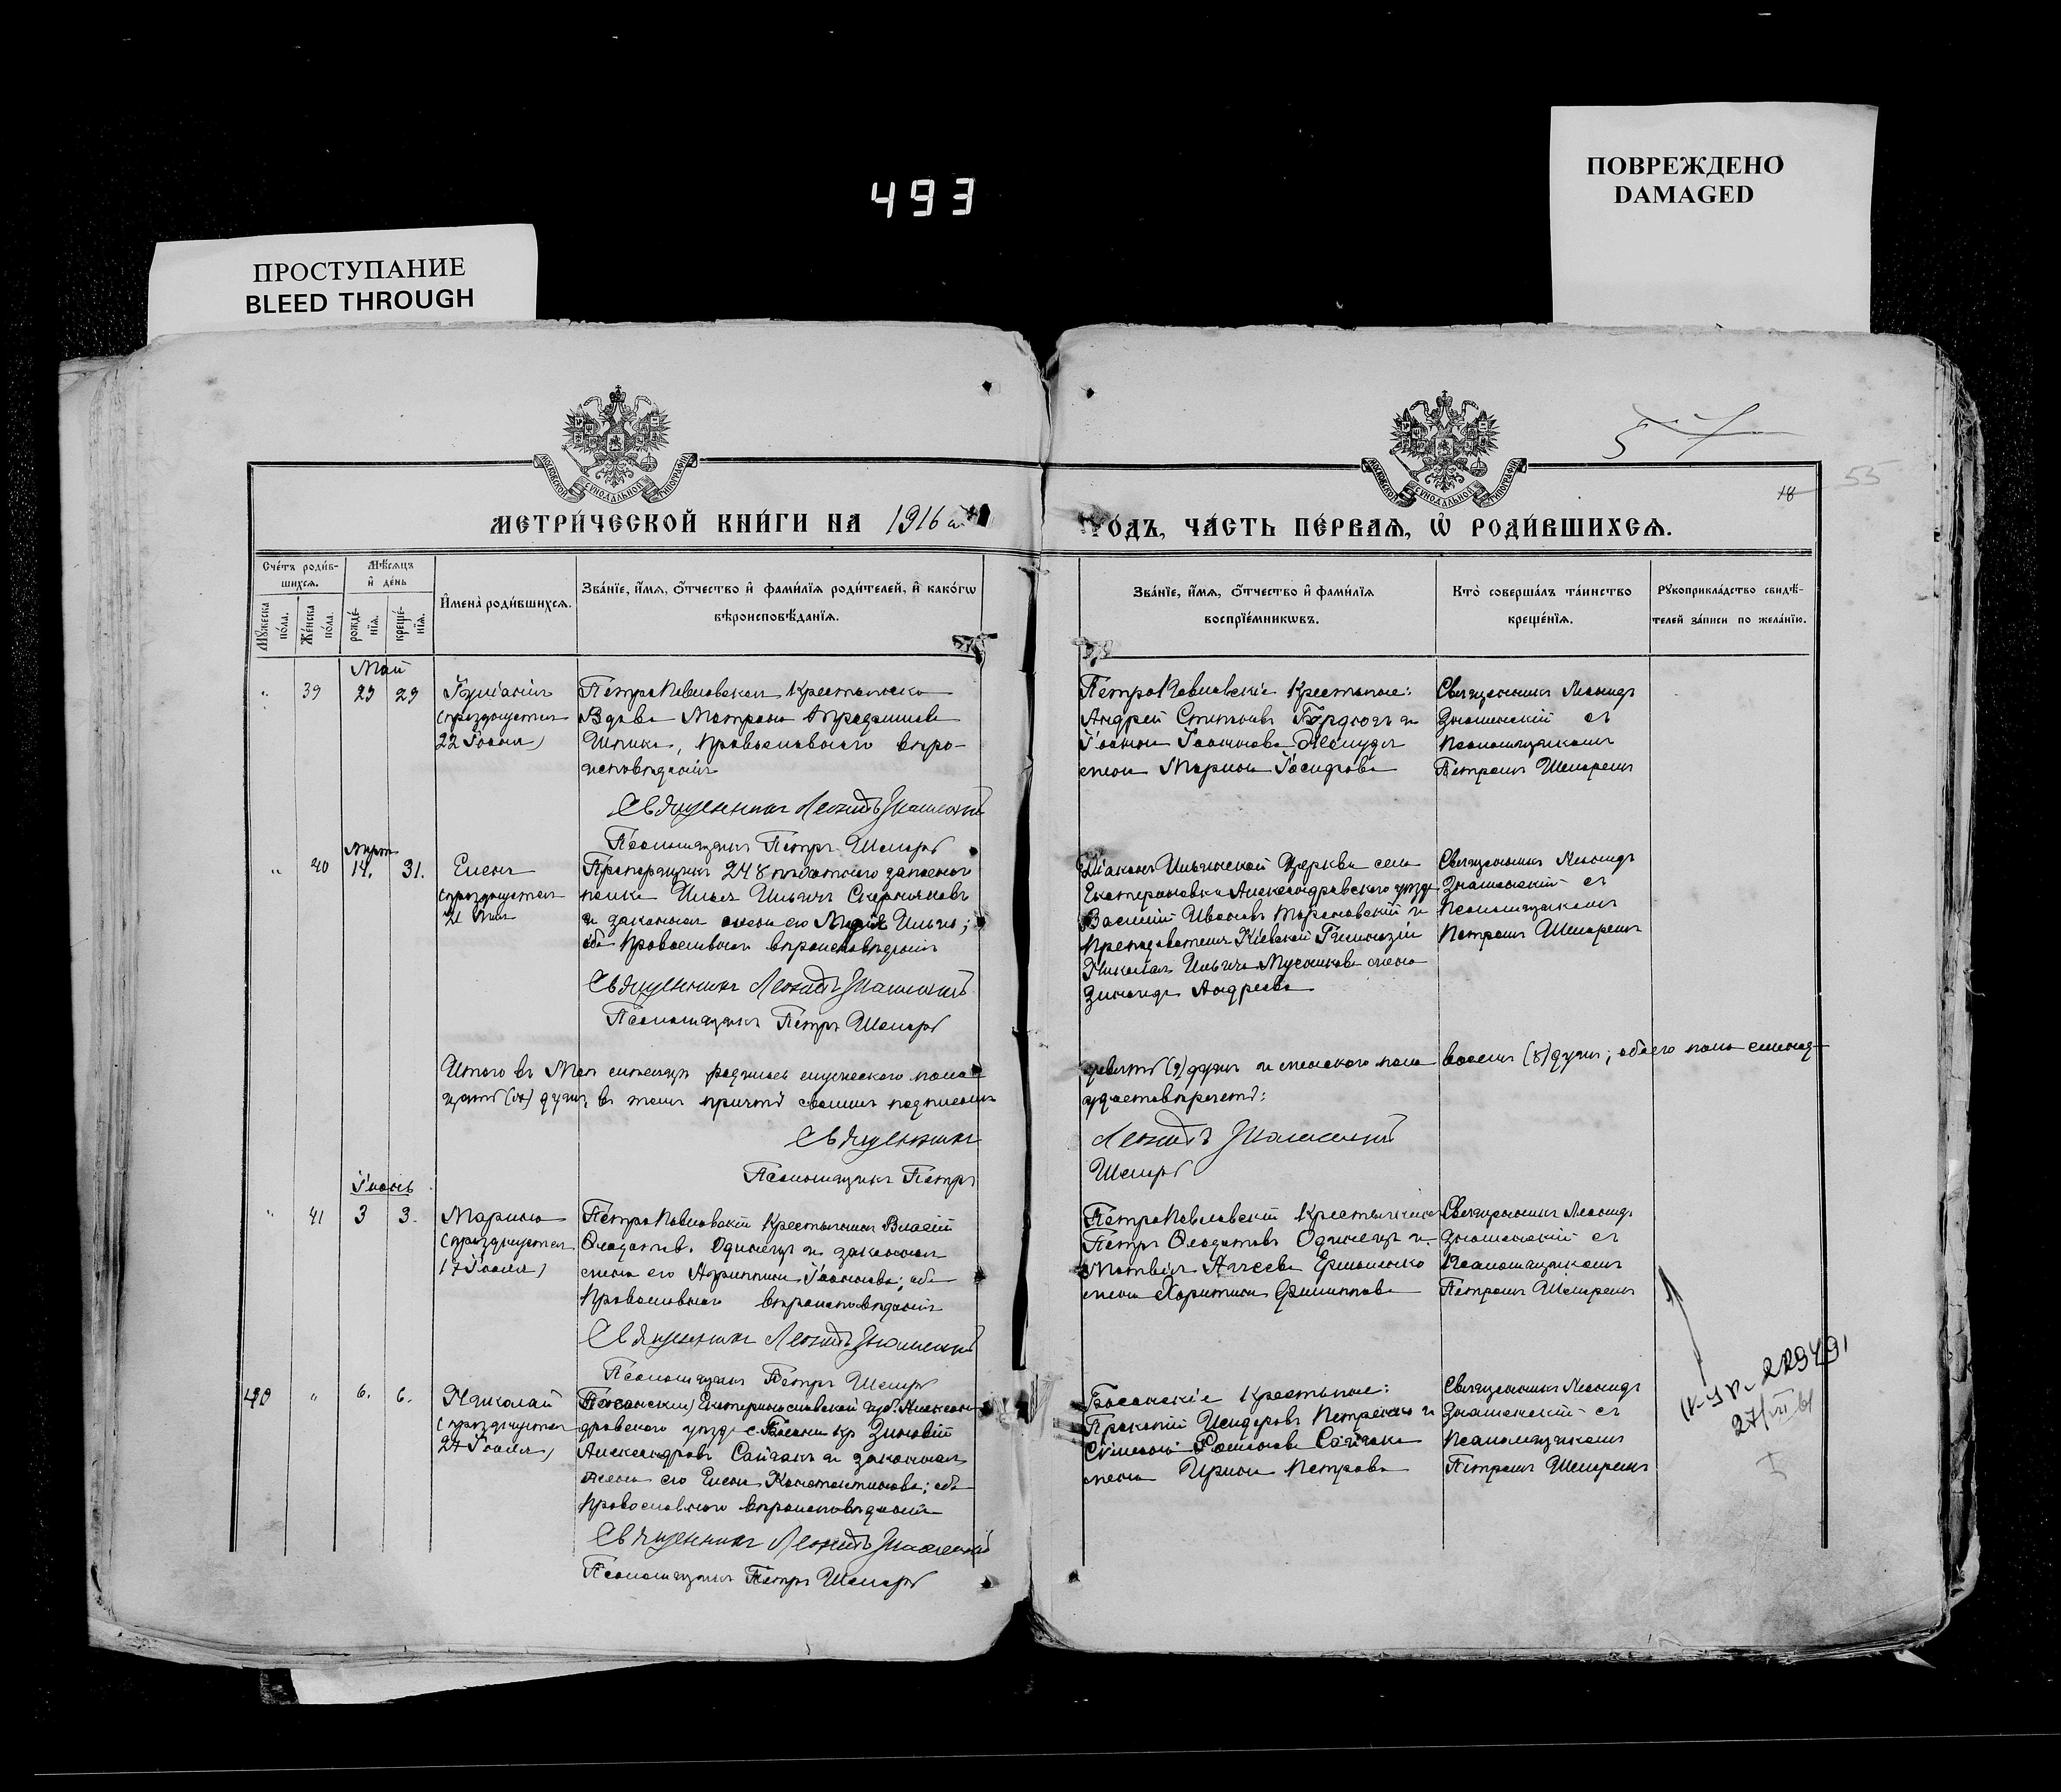 493
ПОВРЕЖДЕНО
DAMAGED
ПРОСТУПАНИЕ
BLEED THROUGH
МОСКОВСКОЙ СѴНОДАЛЬНОЙ ТИПОГРАФІИ
МОСКОВСКОЙ СѴНОДАЛЬНОЙ ТИПОГРАФІИ
55
18
МЕТРИ́ЧЕСКОЙ КНИ́ГИ НА 1916
ГО́ДЪ, ЧА́СТЬ ПЕ́РВАѦ, Ѽ РОДИ́ВШИХСѦ.
Сче́тъ роди́в-
шихсѧ.
Мꙋ́жеска по́ла.
Же́нска по́ла.
Мѣ́сѧцъ
и҆ де́нь
рожде́-
нїѧ.
креще́-
нїѧ.
И҆мена̀ роди́вшихсѧ.
Зва́нїе, и҆́мѧ, ѻ҆́тчество и҆ фами́лїѧ роди́телей, и҆ како́гѡ
вѣроисповѣ́данїѧ.
Зва́нїе, и҆́мѧ, ѻ҆́тчество и҆ фами́лїѧ
воспрїе́мникѡвъ.
Кто̀ соверша́лъ та́инство
креще́нїѧ.
Рꙋкоприкла́дство свидѣ́-
телей за́писи по жела́нїю.
Май
" 39 29 29
Іуліанія
(празднуется
22 Іюня)
ПетроПавловская Крестьянская
Вдова Матрона
Православнаго вѣро-
исповѣданія
Священникъ Леонидъ Знаменскій
Псаломщикъ Петръ Шепаръ
ПетроПавловскіе Крестьяне:
Андрей и
Іоанна Іоаннова
жена Марина Іосифова
Священникъ Леонидъ
Знаменскій съ
Псаломщикомъ
Петромъ Шепаремъ
Мартъ
" 40 14. 31.
Елена
(празднуется
21 Мая
Прапорщикъ 248 пѣхотнаго запаснаго
полка Илья Ильичъ
и законная жена его Марія Ильина;
оба Православнаго вѣроисповѣданія
Священникъ Леонидъ Знаменскій
Псаломщикъ Петръ Шепаръ
Діаконъ Ильинской Церкви села
Екатериновки Александровскаго уѣзда
Василій Ивановъ Тарановскій и
Преподователя Кіевской Гимназіи
Николая Ильича жена
Зинаида Андреева
Священникъ Леонидъ
Знаменскій съ
Псаломщикомъ
Петромъ Шепаремъ
Итого въ Мая мѣсяцѣ родилось мужескаго пола
девять (9) душъ и женскаго пола восемь (8) душъ; обоего пола семнад-
цать (17) душъ, въ чемъ причтъ своимъ подписомъ
удостовѣряетъ:
Священникъ
Леонидъ Знаменскій
Псаломщикъ Петръ
Шепаръ
Іюнь
" 41 3 3.
Марина
(празднуется
17 Іюля)
ПетроПавловскій Крестьянинъ Власій
Ѳеодотовъ Одинецъ и законная
жена его Агриппина Іоаннова; оба
Православнаго вѣроисповѣданія
Священникъ Леонидъ Знаменскій
Псаломщикъ Петръ Шепаръ
ПетроПавловскій Крестьянинъ
Петръ Ѳеодотовъ Одинецъ и
Матвѣя Ермоленко
жена Харитина Филиппова
Священникъ Леонидъ
Знаменскій съ
Псаломщикомъ
Петромъ Шепаремъ
40 " 6. 6.
Николай
(празднуется
27 Іюля)
Екатеринославской губ. Алексан-
дровскаго уѣзда с. Басани кр Зиновій
Александровъ Сайгакъ и законная
жена его Елена Константинова; оба
Православнаго вѣроисповѣданія
Священникъ Леонидъ Знаменскій
Псаломщикъ Петръ Шепаръ
Басанскіе Крестьяне:
Прокопій Петренко и
Сайгака
жена Ирина Петрова
Священникъ Леонидъ
Знаменскій съ
Псаломщикомъ
Петромъ Шепаремъ
229491